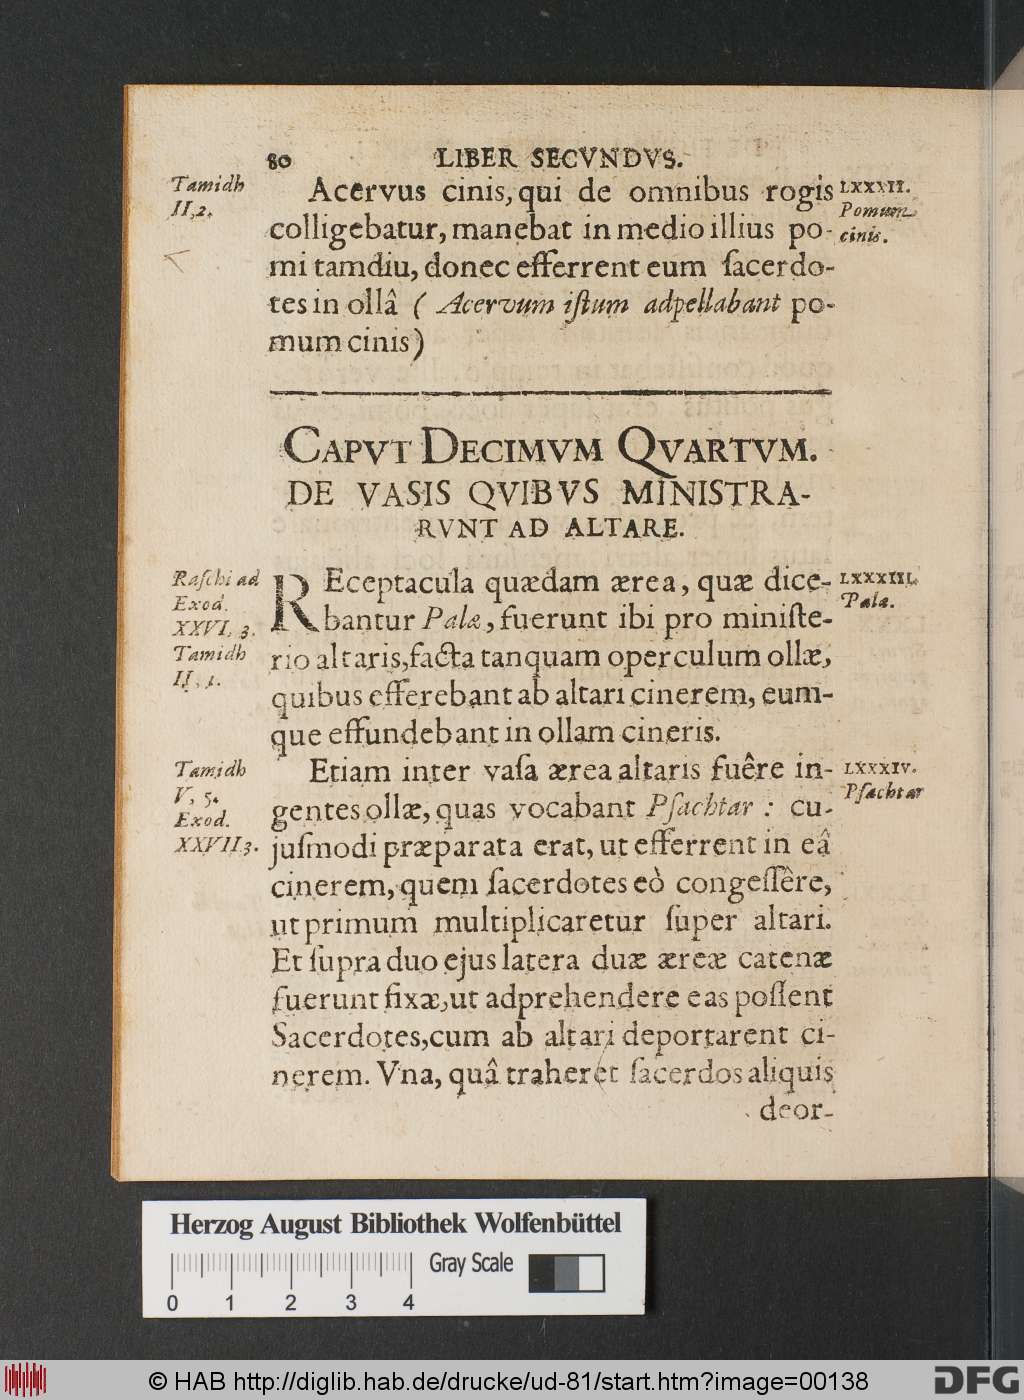 80 LIBER SECVNDVS.
Tamidh
II,2.
Acervus cinis, qui de omnibus rogis
colligebatur, manebat in medio illius po-
mi tamdiu, donec efferrent eum ſacerdo-
tes in ollâ ( Acervum iſtum adpellabant po-
mum cinis)
LXXXII.
Pomum
cinis.
CAPVT DECIMVM QVARTVM.
DE VASIS QVIBVS MINISTRA-
RVNT AD ALTARE.
Raſchi ad
Exod.
XXVI, 3.
Tamidh
II, 1.
REceptacula quædam ærea, quæ dice-
bantur Palæ, fuerunt ibi pro miniſte-
rio altaris, facta tanquam operculum ollæ,
quibus efferebant ab altari cinerem, eum-
que effundebant in ollam cineris.
LXXXIII.
Palæ.
Tamidh
V, 5.
Exod.
XXVII 3.
Etiam inter vaſa ærea altaris fuêre in-
gentes ollæ, quas vocabant Pſachtar : cu-
juſmodi præparata erat, ut efferrent in eâ
cinerem, quem ſacerdotes eò congeſſêre,
ut primum multiplicaretur ſuper altari.
Et ſupra duo ejus latera duæ æreæ catenæ
fuerunt fixæ, ut adprehendere eas poſſent
Sacerdotes, cum ab altari deportarent ci-
nerem. Vna, quâ traheret ſacerdos aliquis
deor-
LXXXIV.
Pſachtar
Herzog August Bibliothek Wolfenbüttel
Gray Scale
0 1 2 3 4
© HAB http://diglib.hab.de/drucke/ud-81/start.htm?image=00138
DFG